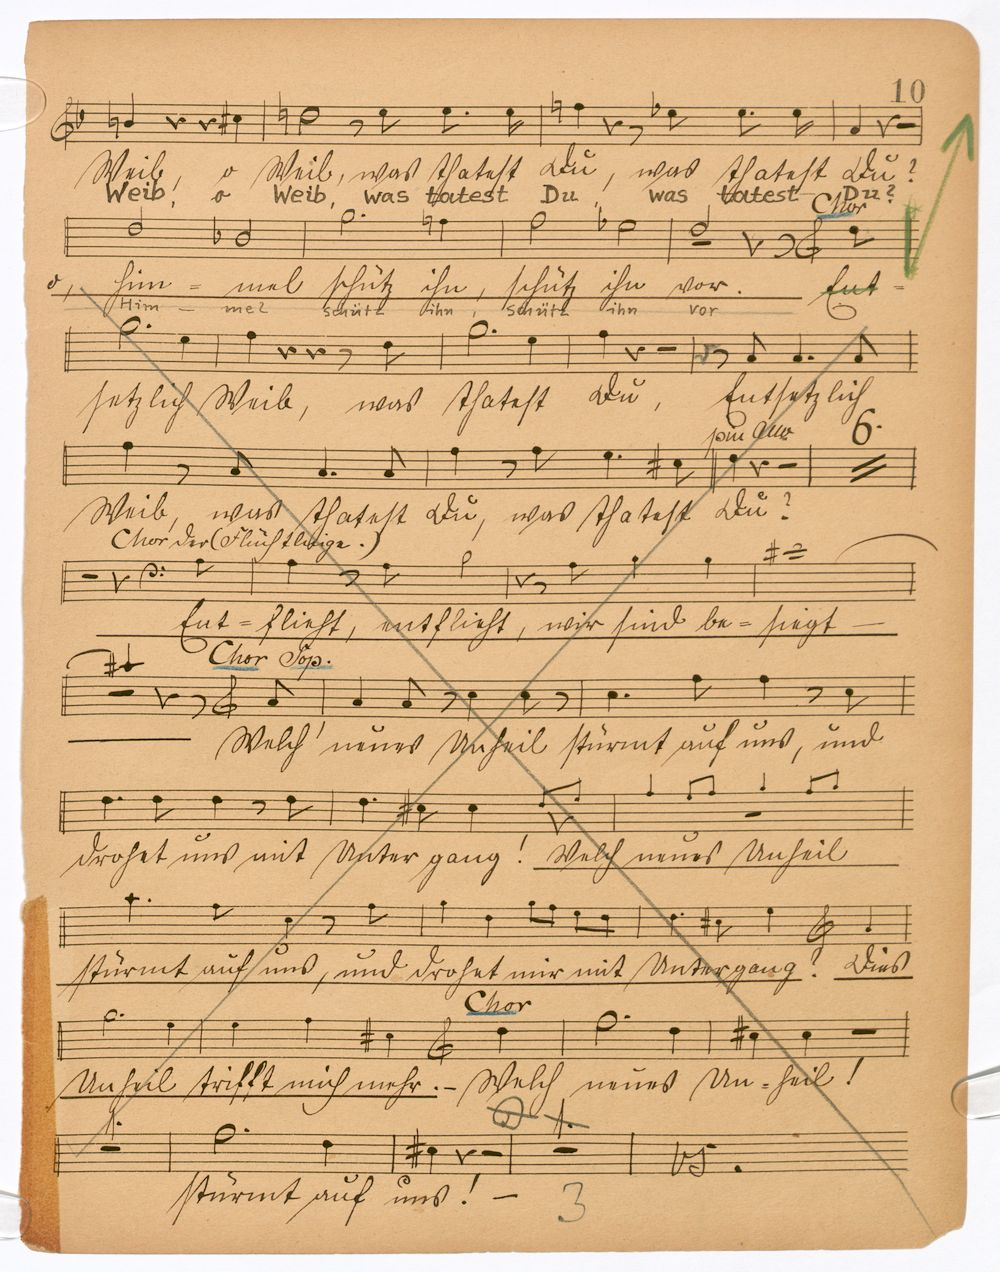 10
Weib, o Weib, was thatest Du, was thatest Du?
Weib, o Weib, was tatest Du, was tatest Du?
Chor
o, Him = mel schütz ihn, schütz ihn vor. Ent =
Him - mel schütz ihn, schütz ihn vor
setzlich Weib, was thatest Du, Entsetzlich
6.
Weib, was thatest Du, was thatest Du?
Chor der (Flüchtlinge.)
Ent = flieht, entflieht, wir sind be = siegt —
Chor Sop.
Welch' neues Unheil stürmt auf uns, und
drohet uns mit Untergang! Welch neues Unheil
stürmt auf uns, und drohet mir mit Untergang? Dies
Chor
Unheil trifft mich mehr. – Welch neues Un = heil!
stürmt auf uns! –
3